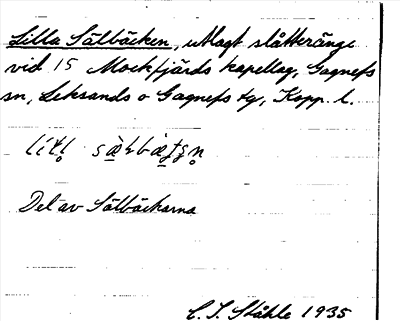 Lilla Sälbäcken, utlagt slåtteränge
vid 15 Mockfjärds kapellag, Gagnefs
sn, Leksands o Gagnefs tg, Kopp. l.
Det av Sälbäckarna
C. I. Ståhle 1935